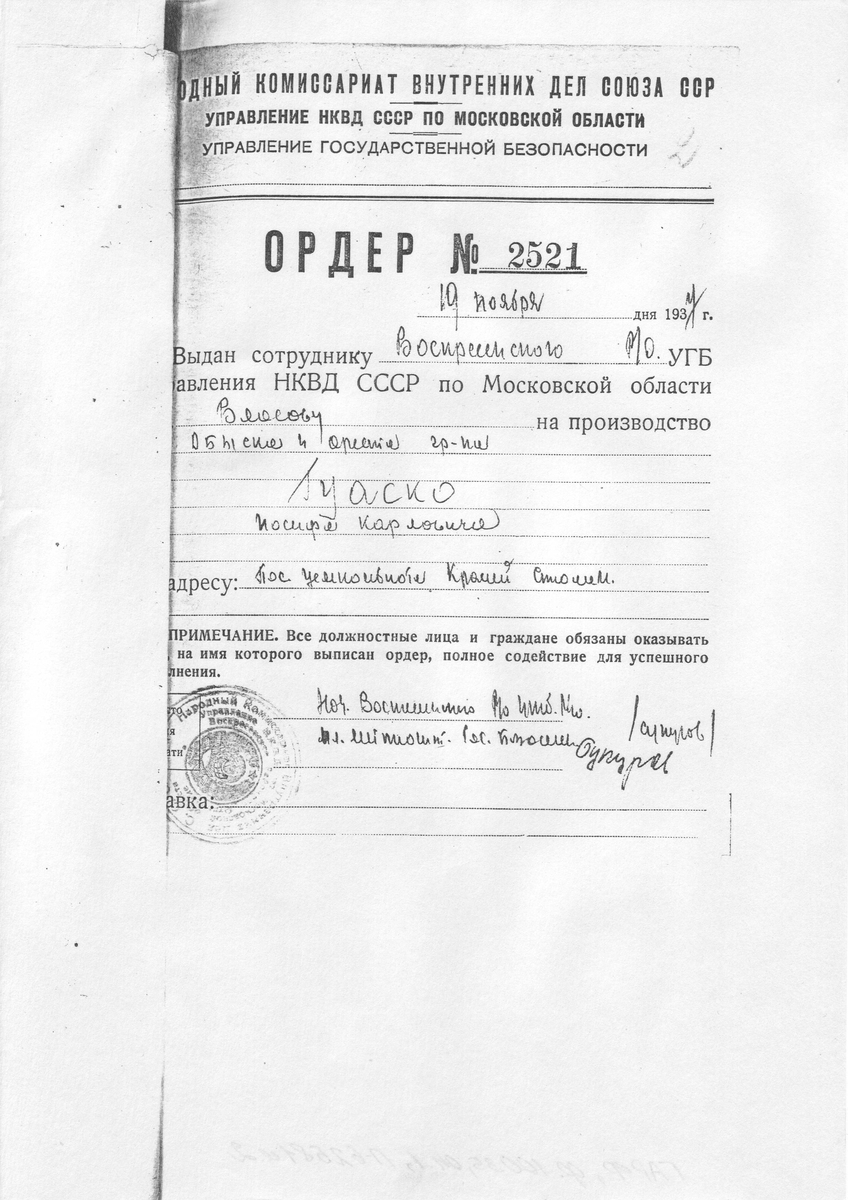 ОДНЫЙ КОМИССАРИАТ ВНУТРЕННИХ ДЕЛ СОЮЗА ССР
УПРАВЛЕНИЕ НКВД СССР ПО МОСКОВСКОЙ ОБЛАСТИ
УПРАВЛЕНИЕ ГОСУДАРСТВЕННОЙ БЕЗОПАСНОСТИ
ОРДЕР № 2521
19 ноября дня 1937 г.
Выдан сотруднику Воскресенского Р/О. УГБ
авления НКВД СССР по Московской области
Власову на производство
Обыска и ареста гр-на
Гуаско
Иосифа Карловича
адресу: Пос. Цемгиганта
ПРИМЕЧАНИЕ. Все должностные лица и граждане обязаны оказывать
, на имя которого выписан ордер, полное содействие для успешного
лнения.
Нач. Р/О
Народный
Управление
ати"
авка: